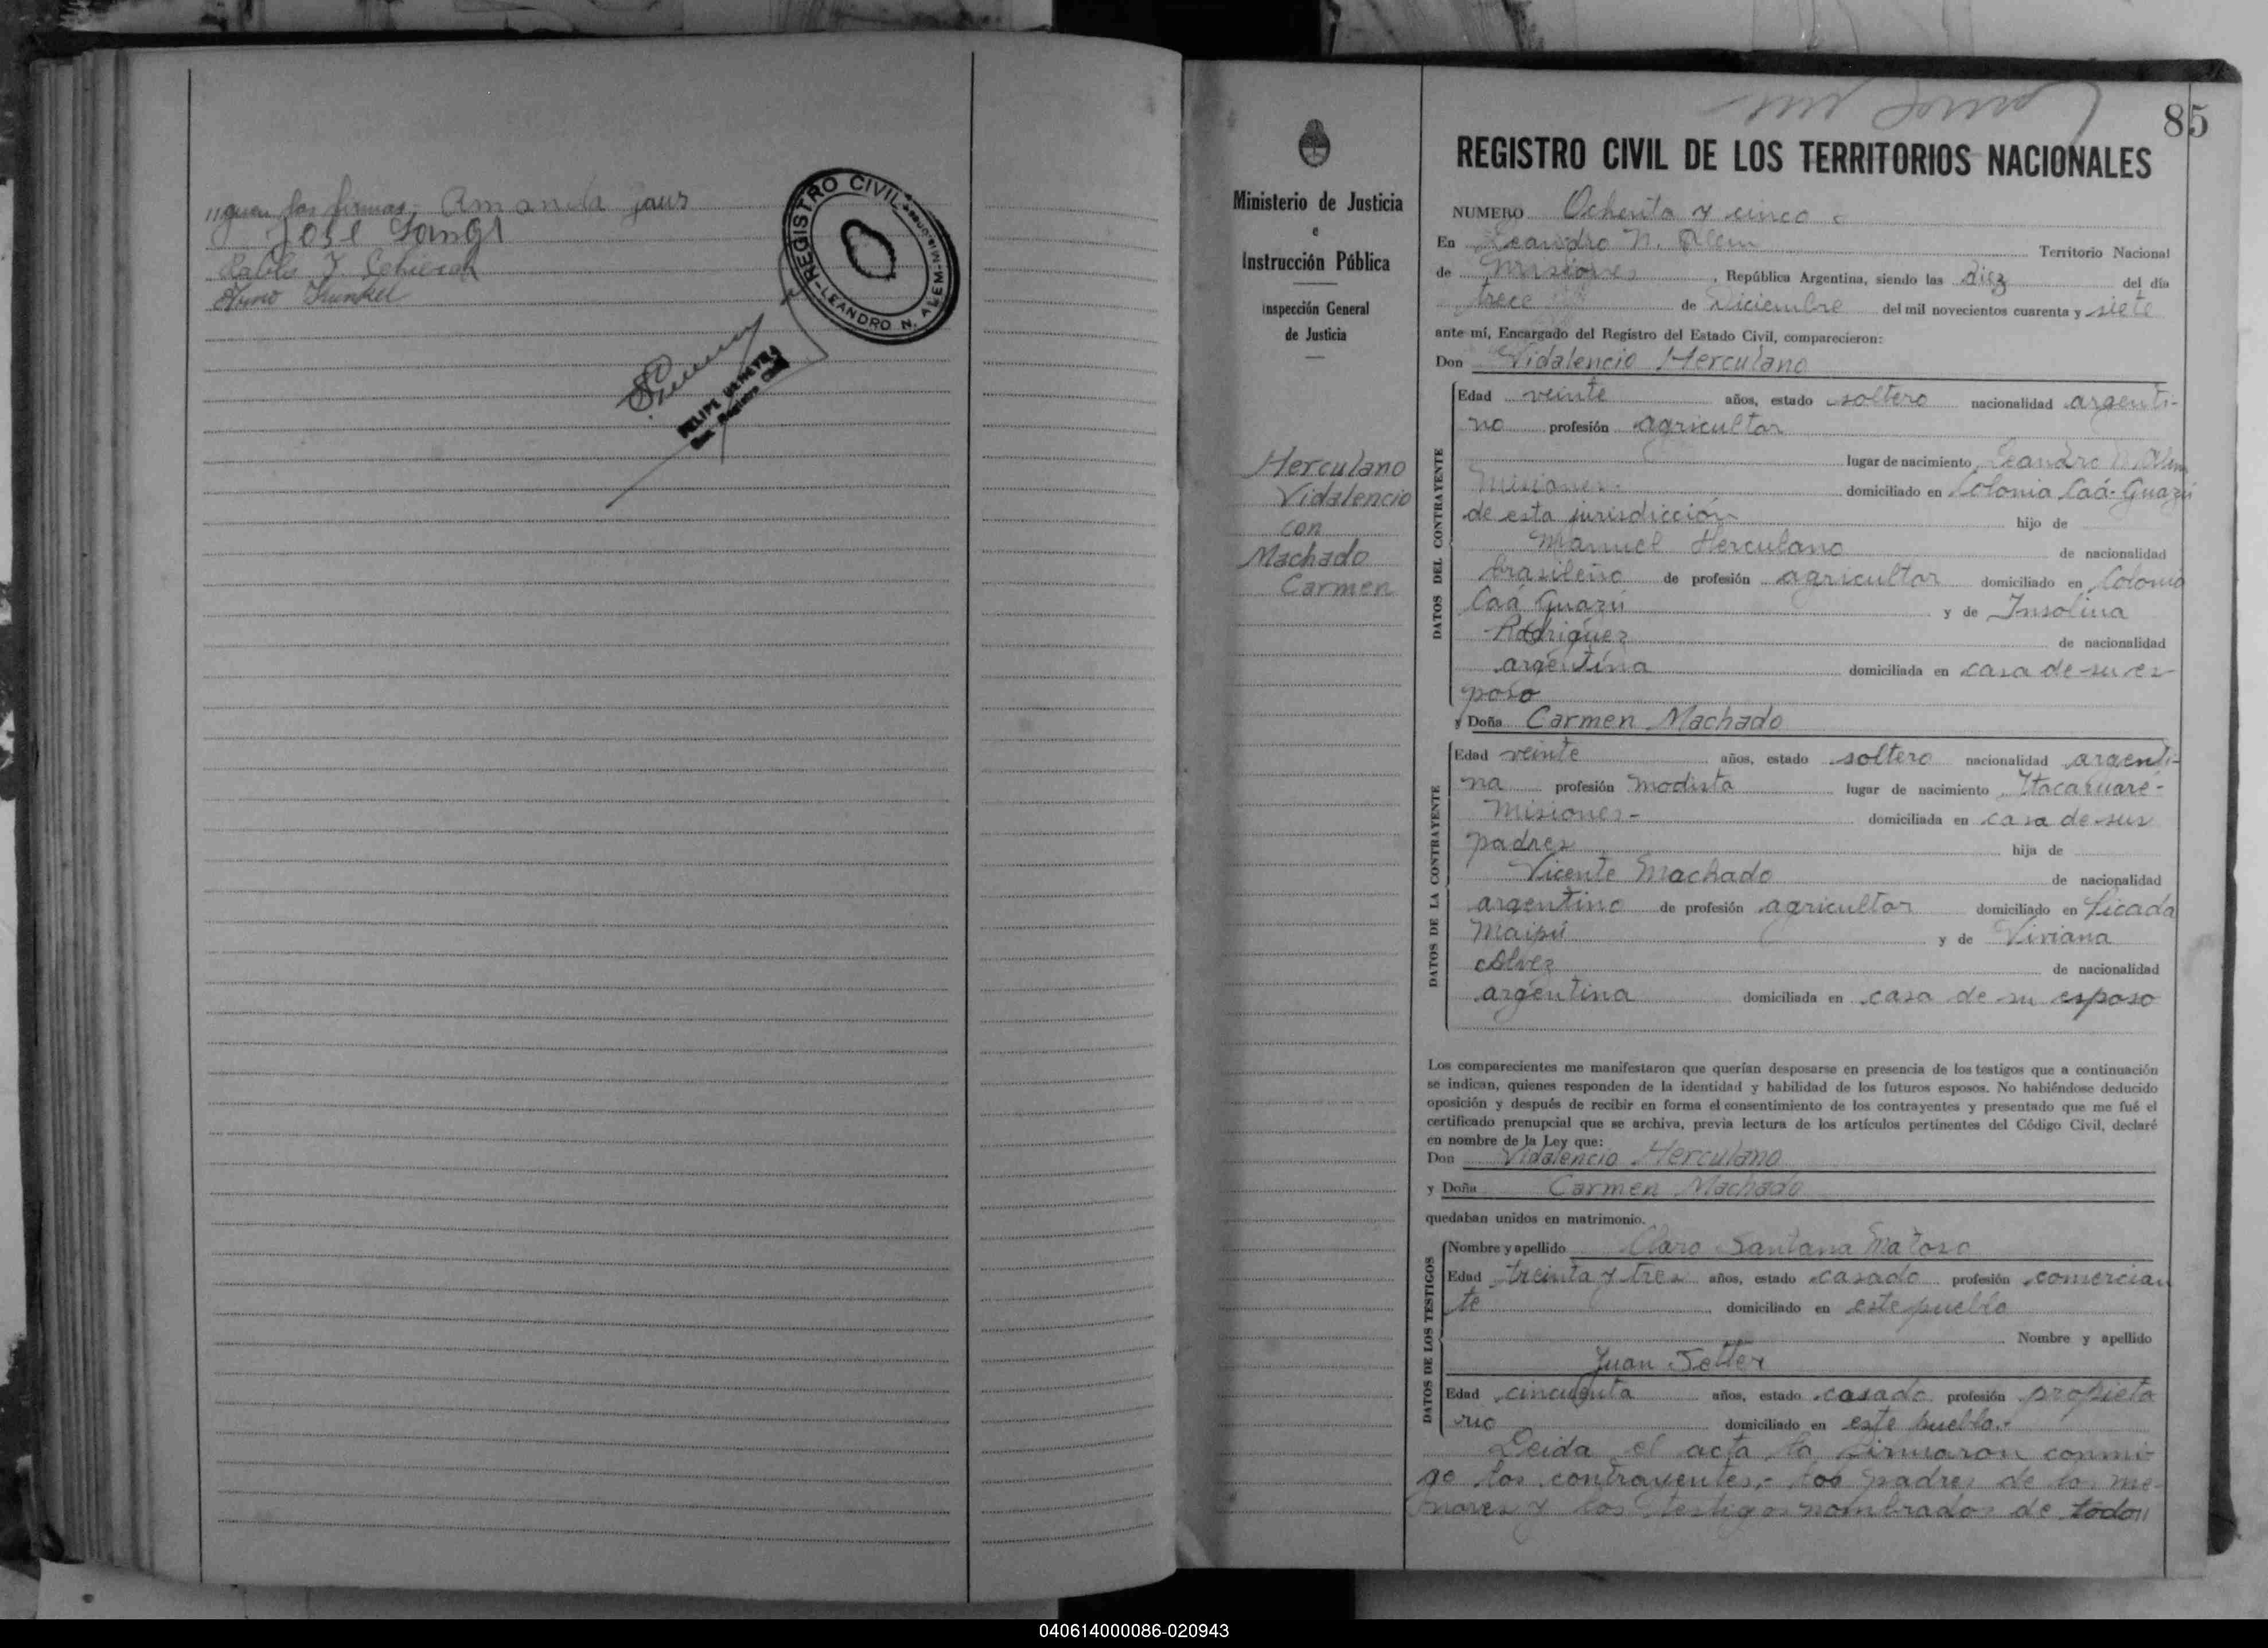 guen las firmas: Amanda
José
Pablo J.
Kunkel
REGISTRO CIVIL
LEANDRO N. ALEM-Misiones
FELIPE
Enc. Registro Civil
85
Ministerio de Justicia
e
Instrucción Pública
Inspección General
de Justicia
Herculano
Vidalencio
con
Machado
Carmen
REGISTRO CIVIL DE LOS TERRITORIOS NACIONALES
NUMERO Ochenta y cinco
En Leandro N. Alem Territorio Nacional
de Misiones, República Argentina, siendo las diez del día
trece de Diciembre del mil novecientos cuarenta y siete
ante mí, Encargado del Registro del Estado Civil, comparecieron:
Don Vidalencio Herculano
DATOS DEL CONTRAYENTE
Edad veinte años, estado soltero nacionalidad argenti-
no profesión agricultor
lugar de nacimiento Leandro N. Alem
Misiones.- domiciliado en Colonia Caá-Guazú
de esta jurisdicción hijo de
Manuel Herculano de nacionalidad
brasileño de profesión agricultor domiciliado en Colonia
Caá Guazú y de Insolina
Rodriguez de nacionalidad
argentina domiciliada en casa de su es-
poso
y Doña Carmen Machado
DATOS DE LA CONTRAYENTE
Edad veinte años, estado soltera nacionalidad argenti-
na profesión modista lugar de nacimiento Itacaruaré-
Misiones- domiciliada en casa de sus
padres hija de
Vicente Machado de nacionalidad
argentino de profesión agricultor domiciliado en Picada
Maipú y de Viviana
Alvez de nacionalidad
argentina domiciliada en casa de su esposo
Los comparecientes me manifestaron que querían desposarse en presencia de los testigos que a continuación
se indican, quienes responden de la identidad y habilidad de los futuros esposos. No habiéndose deducido
oposición y después de recibir en forma el consentimiento de los contrayentes y presentado que me fué el
certificado prenupcial que se archiva, previa lectura de los artículos pertinentes del Código Civil, declaré
en nombre de la Ley que:
Don Vidalencio Herculano
y Doña Carmen Machado
quedaban unidos en matrimonio.
DATOS DE LOS TESTIGOS
Nombre y apellido Claro Santana Matoso
Edad treinta y tres años, estado casado profesión comercian
te domiciliado en este pueblo
Nombre y apellido
Juan Fetter
Edad cincuenta años, estado casado profesión propieta
rio domiciliado en este pueblo.-
Leida el acta la firmaron conmi-
go los contrayentes,- los padres de los me-
nores y los testigos nombrados de todo//
040614000086-020943